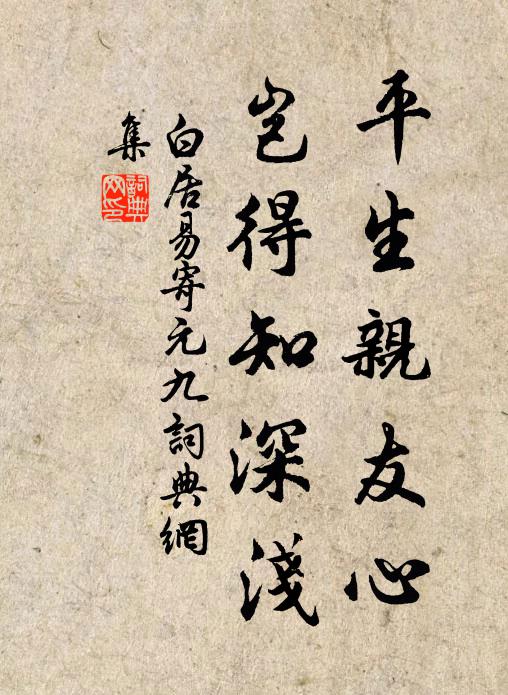 平生親友心
豈得知深淺
白居易寄元九詞典網
集
詞典網印